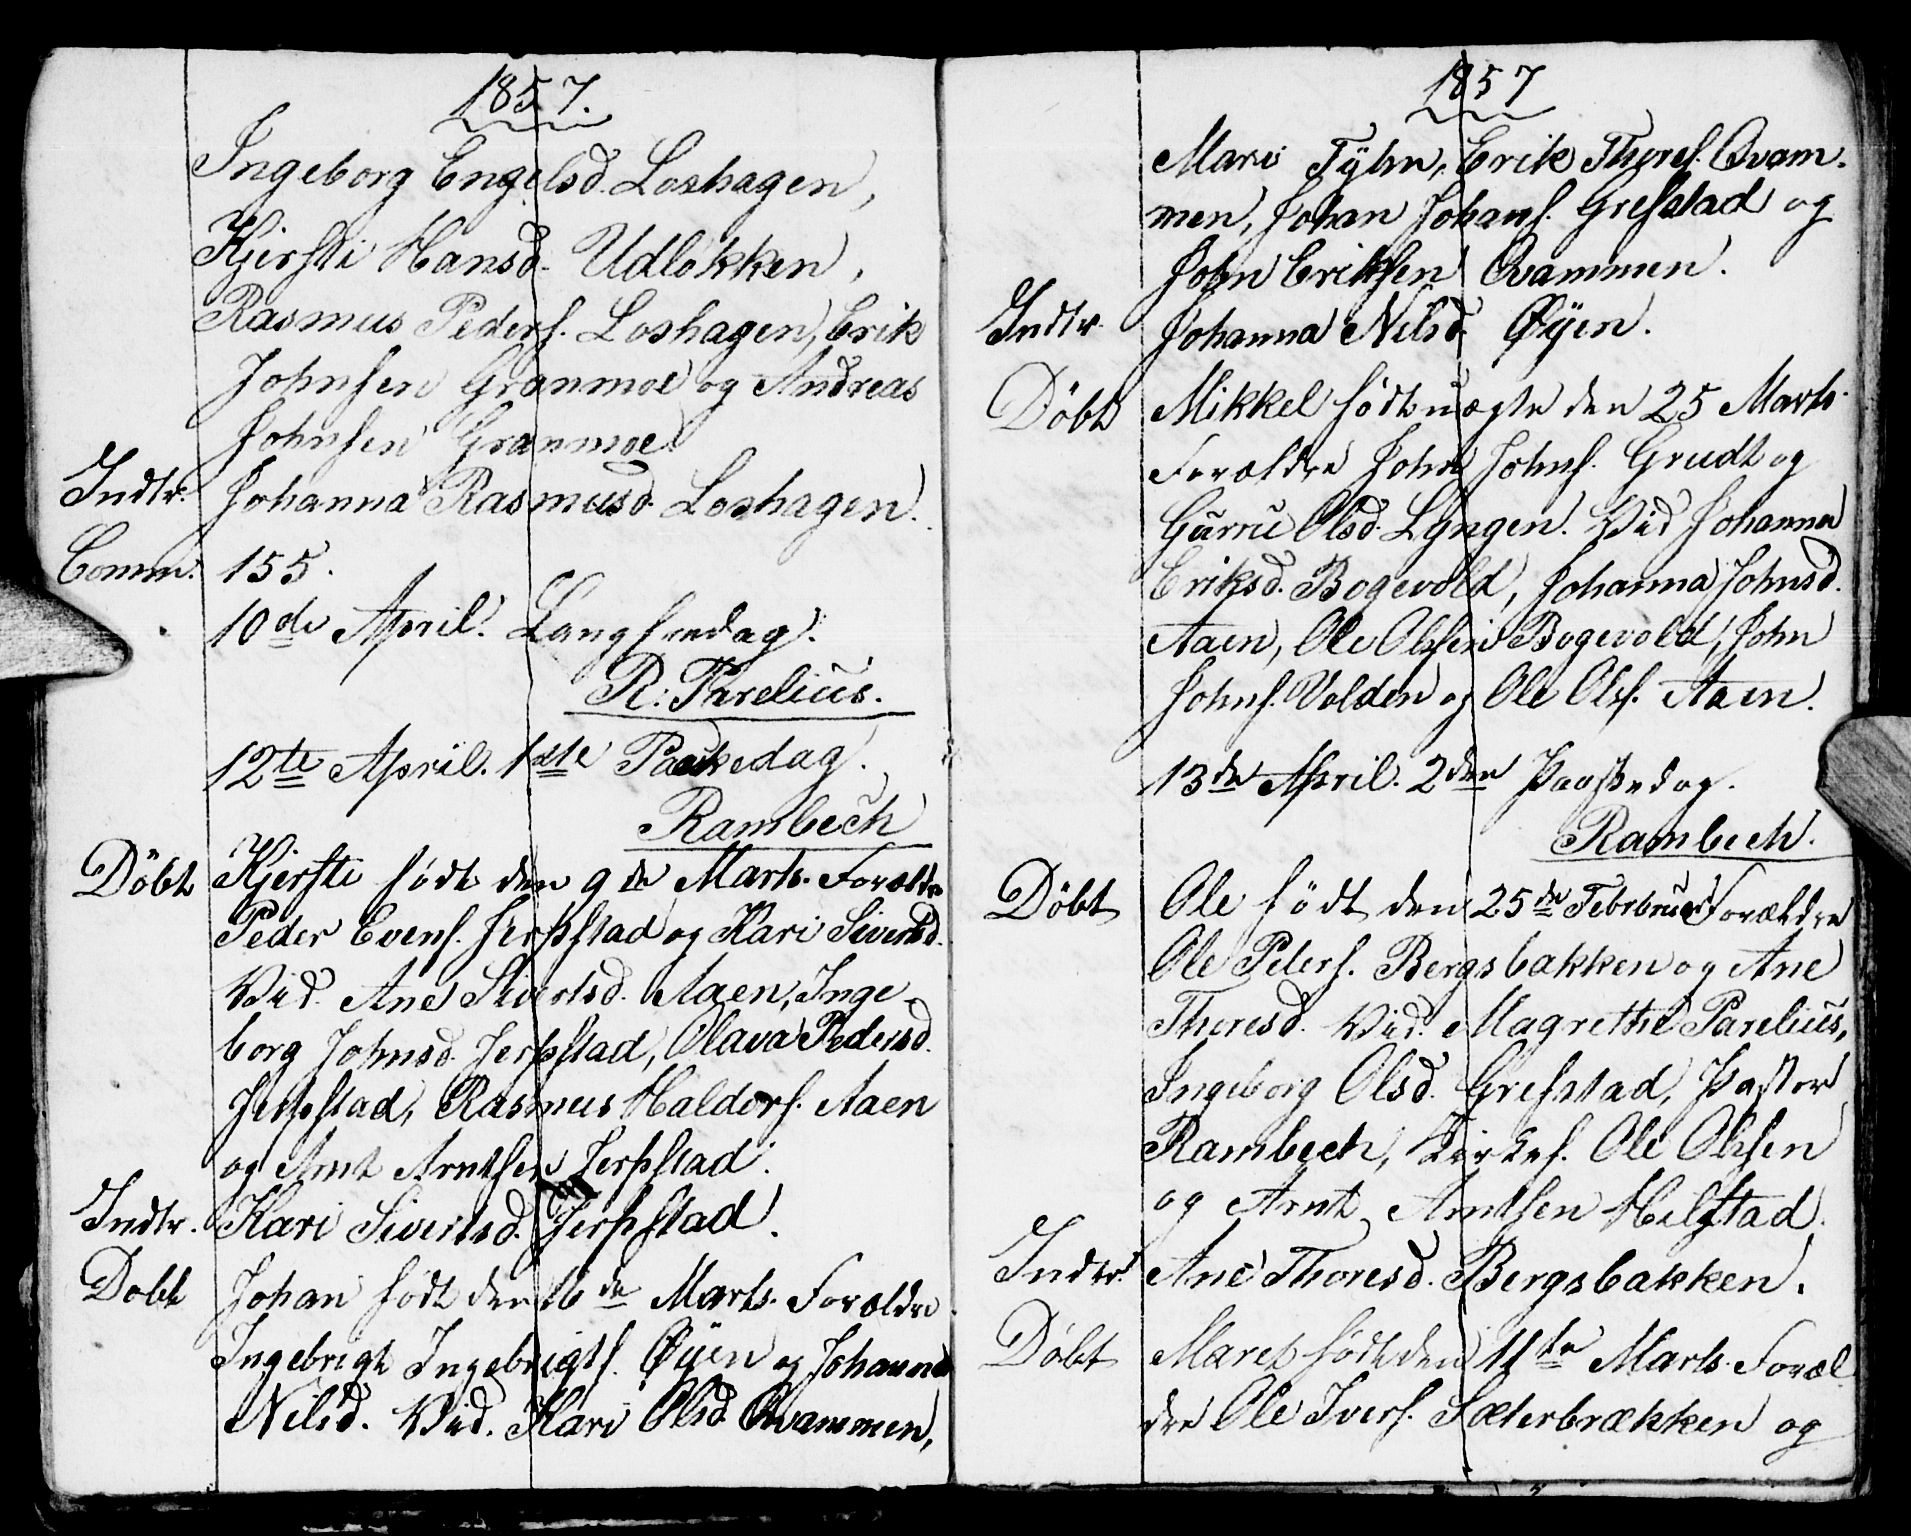 1857.
Ingeborg Engelsd. Loshagen,
Kjersti Hansd. Udløkken,
Rasmus Peders. Loshagen, Erik
Johnsen Granmoe og Andreas
Johnsen Granmoe
Indtr. Johanna Rasmusd. Loshagen.
Comm. 155.
10de April. Langfredag.
R: Parelius.
12te April. 1ste Paaskedag.
Rambech
Döbt Kjersti født den 9de Marts. Forældre
Peder Evens. Jerpstad og Kari Sivertsd.
Vid. Ane Sivertsd. Aaen, Inge-
borg Johnsd. Jerpstad, Olava Pedersd.
Jerpstad, Rasmus Haldors. Aaen
og Arnt Arntsen Jerpstad.
Indtr. Kari Sivertsd. Jerpstad.
Döbt Johan født den 16de Marts. Forældre
Ingebrigt Ingebrigts. Øyen og Johanna
Nilsd. Vid. Kari Olsd. Qvammen,
1857
Mari Tyhn, Erik Thores. Qvam-
men, Johan Johans. Grefstad og
John Eriksen Qvammen.
Indtr. Johanna Nilsd. Øyen.
Döbt Mikkel født uægte den 25 Marts.
Forældre John Johns. Grudt og
Gurru Olsd. Lyngen. Vid Johanna
Eriksd. Bogevold, Johanna Johnsd.
Aaen, Ole Olsen Bogevold, John
Johns. Volden og Ole Ols. Aaen.
13de April. 2den Paaskedag.
Rambech.
Döbt Ole født den 25de Februar Forældre
Ole Peders. Bergsbakken og Ane
Thoresd. Vid. Magrethe Parelius,
Ingeborg Olsd. Grefstad, Pastor
Rambech, Kirkes. Ole Olsen
og Arnt Arntsen Hilstad.
Indtr. Ane Thoresd. Bergsbakken.
Döbt Maret født den 11te Marts. Foræl-
dre Ole Ivers. Sæterbrækken og